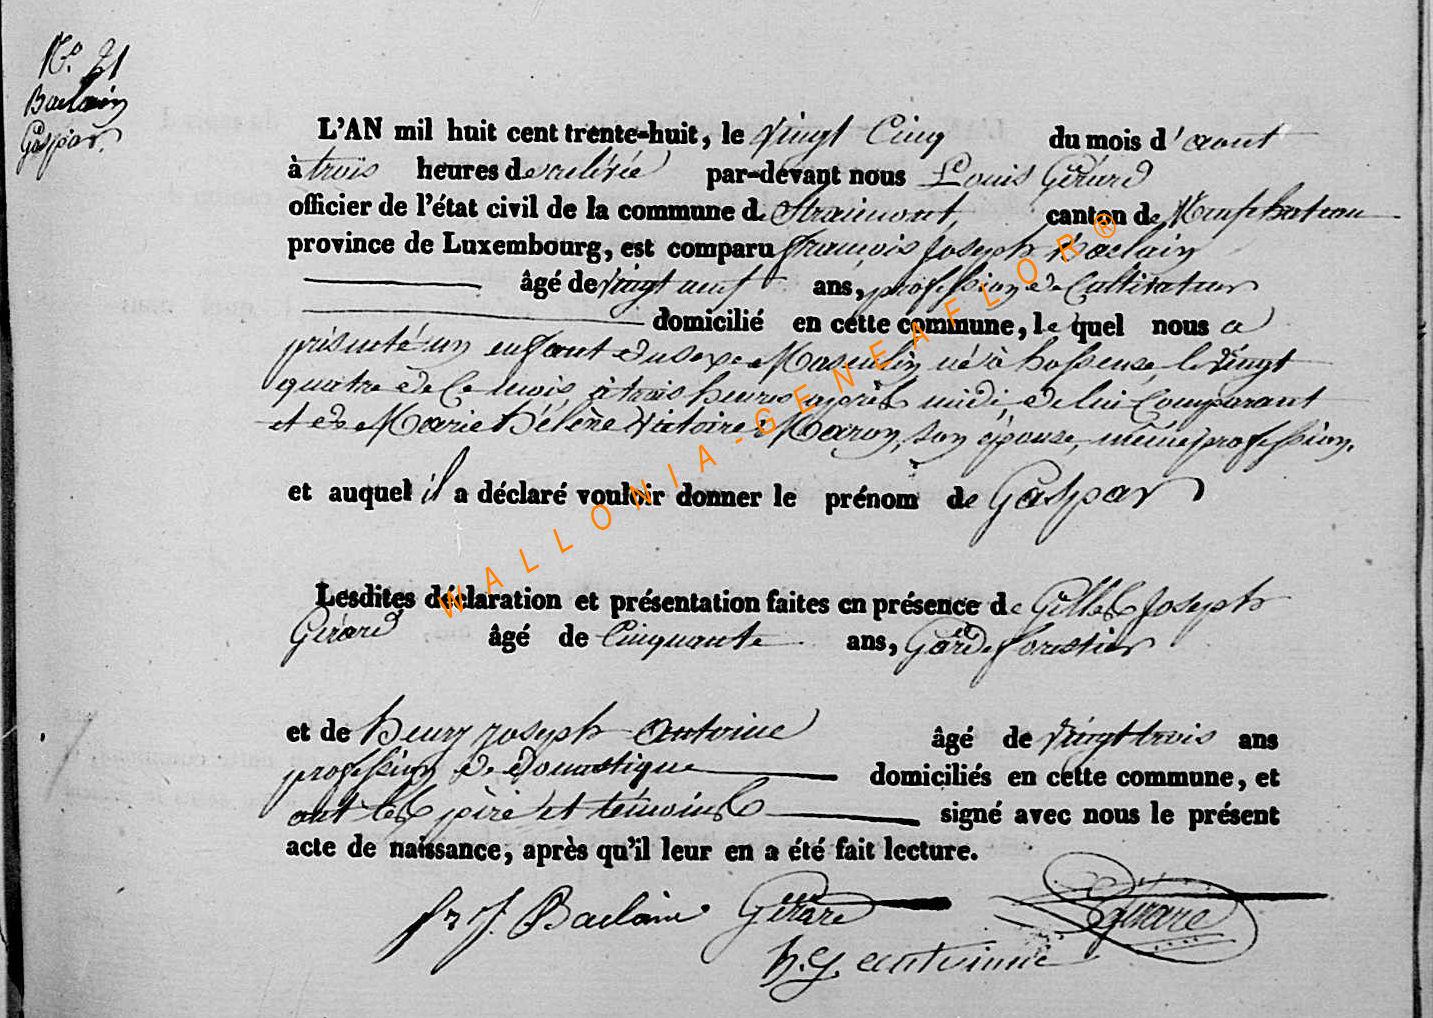 N.o 21
Baclain
Gaspar.
L'AN mil huit cent trente-huit, le vingt cinq du mois d'aout
à trois heures de relévée par-devant nous Louis Gérard
officier de l'état civil de la commune de Straimont, canton de Neufchateau
province de Luxembourg, est comparu François Joseph Baclain
âgé de vingt neuf ans, profession de Cultivateur
domicilié en cette commune, le quel nous a
présenté un enfant du sexe Masculin né à hosseuse, le vingt
quatre de ce mois, à trois heures après midi, de lui Comparant
et de Marie Hélène Victoire Maron, son épouse, même profession.
et auquel il a déclaré vouloir donner le prénom de Gaspar
Lesdites déclaration et présentation faites en présence de Gilles Joseph
Gérard âgé de Cinquante ans, Garde forestier
et de henry joseph antoine âgé de vingt trois ans
profession de domestique domiciliés en cette commune, et
ont les père et témoins signé avec nous le présent
acte de naissance, après qu'il leur en a été fait lecture.
fr J. Baclain Gérard Gérard
h. j. antoinne
WALLONIA-GENEAFLOR®